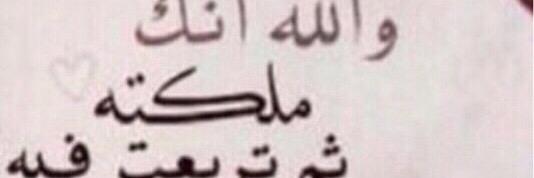 والله انك
ملكته
ثم تربعت فيه